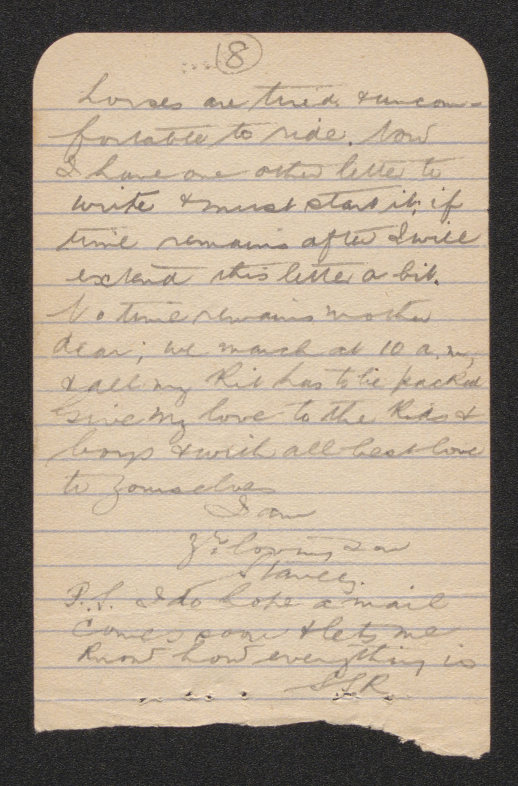 8
horses are tired & uncom-
fortable to ride. Now
I have one other letter to
write & must start it; if
time remains after I will
extend this letter a bit.
No time remains mother
dear; we march at 10 a.m,
& all my kit has to be packed
Give my love to the kids &
boys & with all best love
to yourselves
I am
Yr loving son
Stanley.
P.S. I do hope a mail
comes soon & lets me
know how everything is
SSR